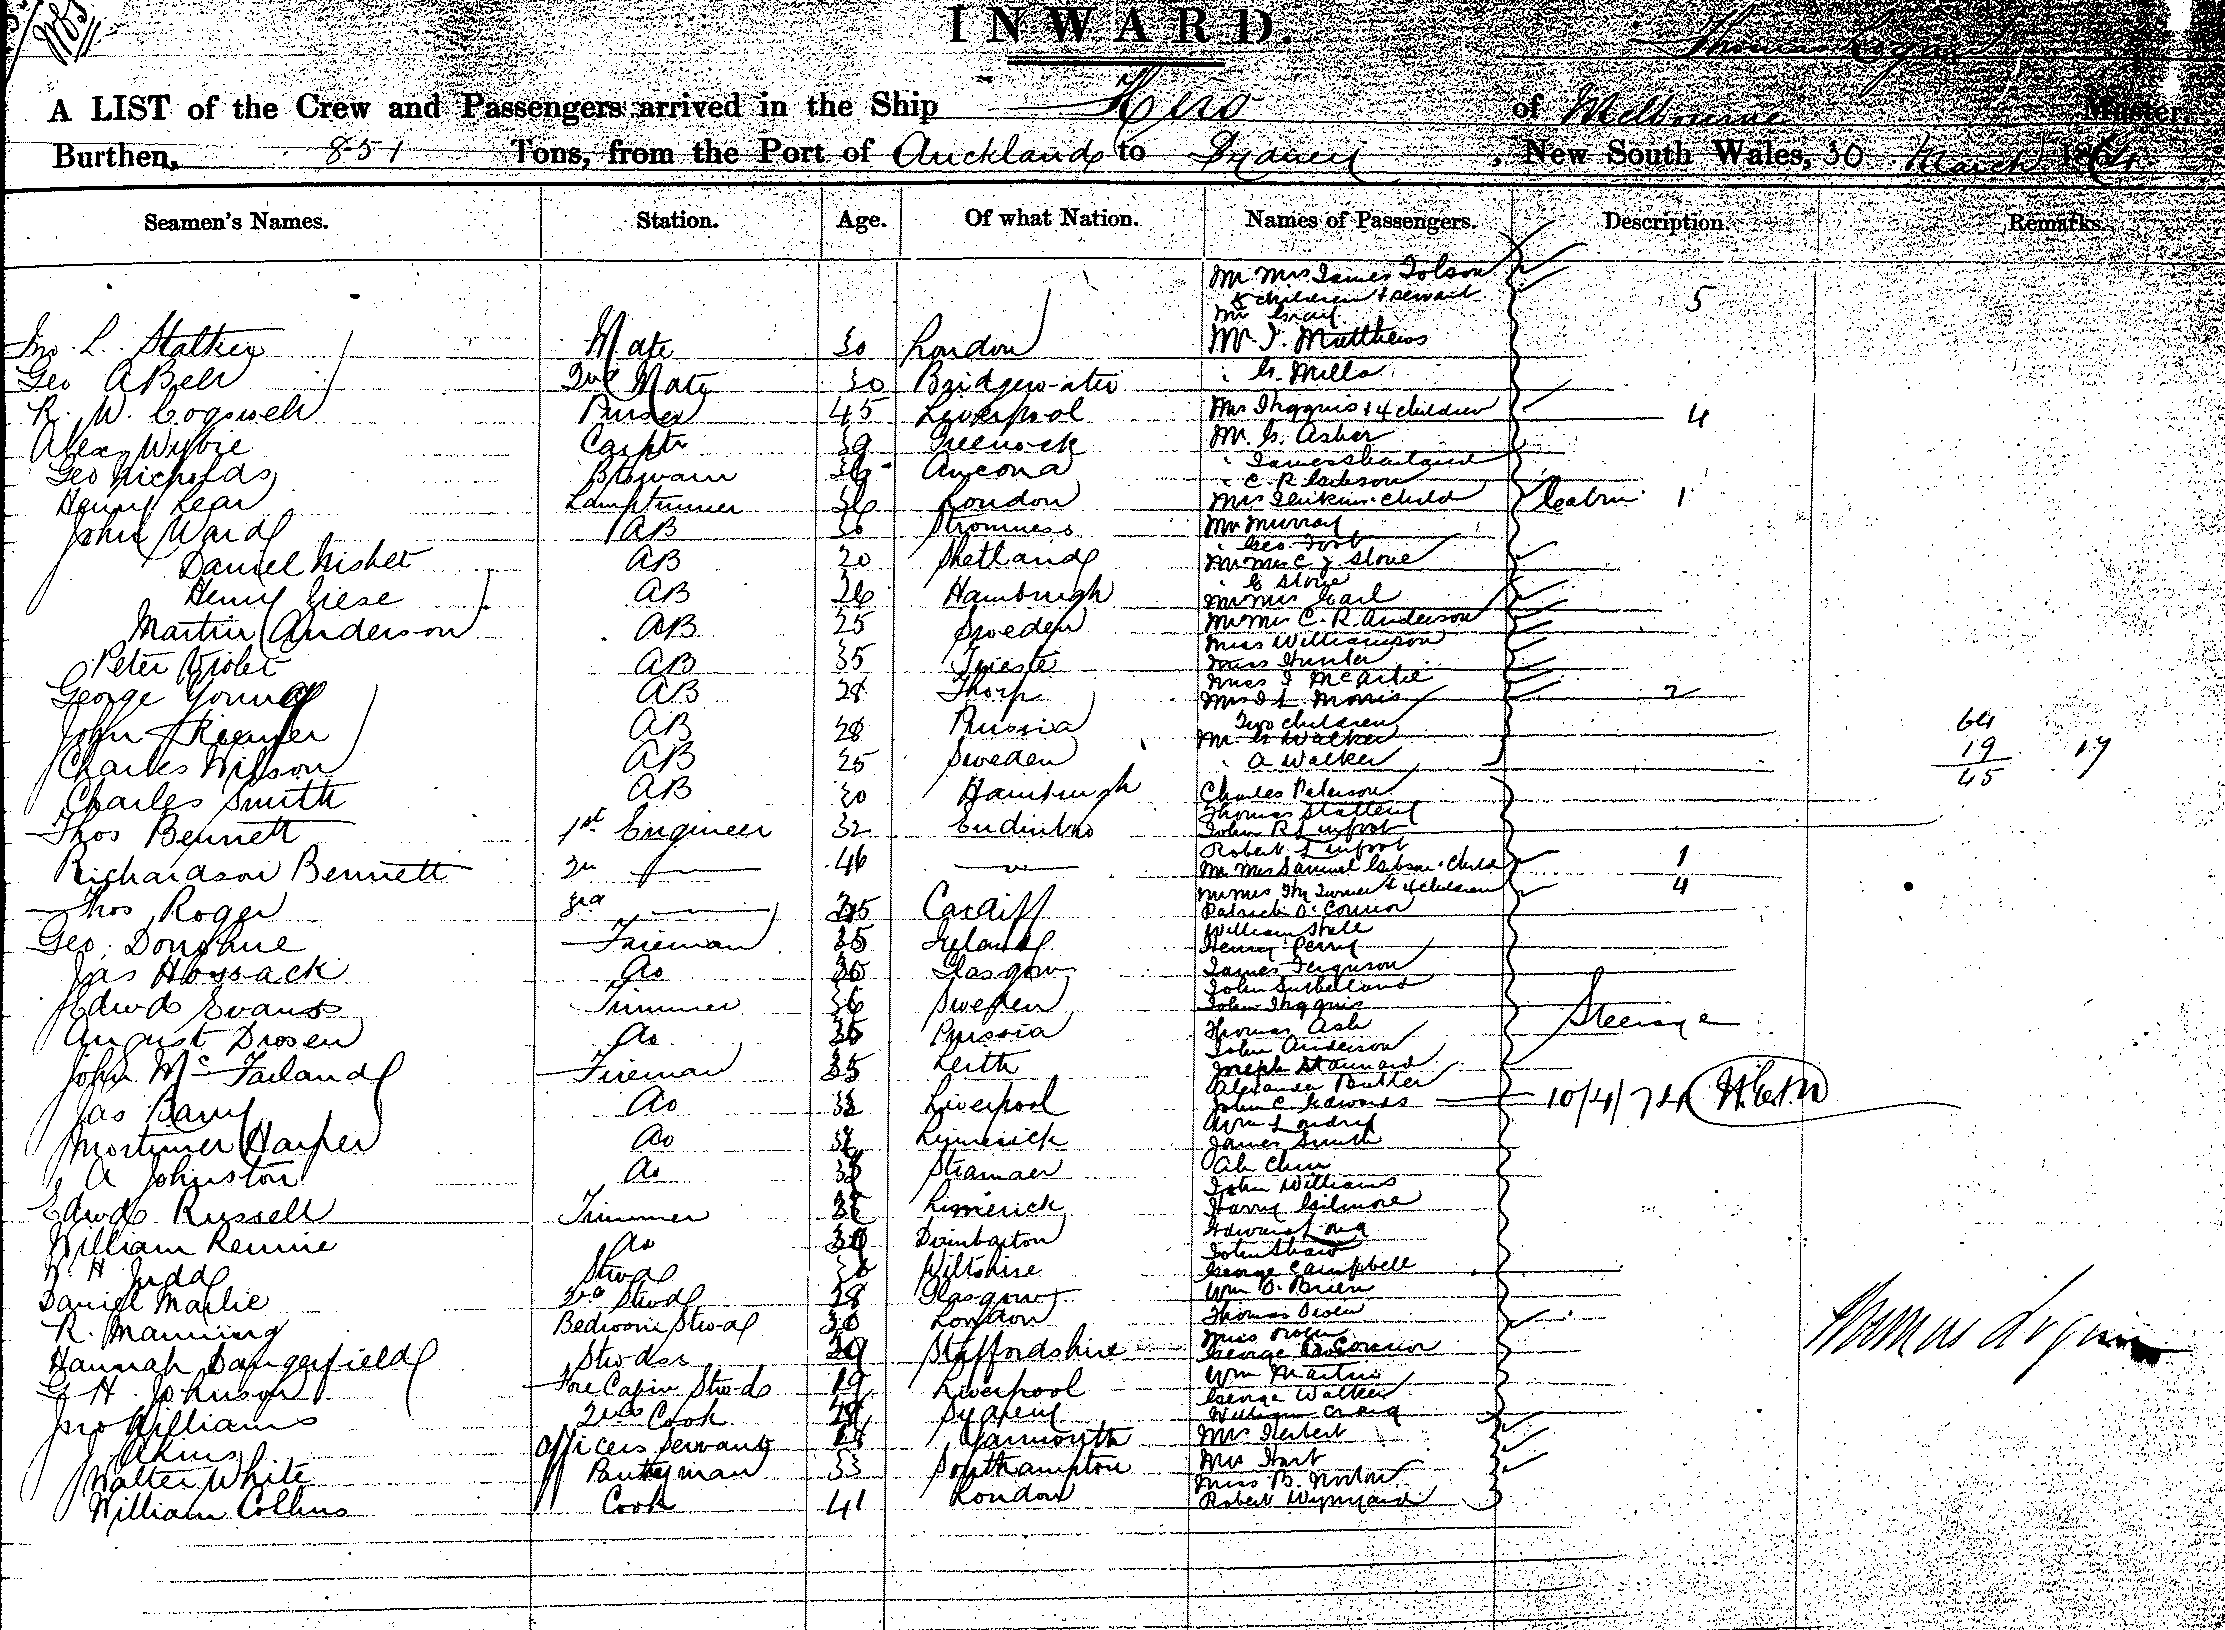 INWARD.
Thomas Logan
A LIST of the Crew and Passengers arrived in the Ship Hero of Melbourne Master,
Burthen, 851 Tons, from the Port of Auckland to Sydney, New South Wales, 30 March 1874
Seamen's Names. Station. Age. Of what Nation. Names of Passengers. Description. Remarks.
Mr Mrs James Tolson
children & servant 5
Jno. L. Stalker Mate 30 London Mr. J. Matthews
Geo A Bell 2nd Mate 30 Bridgewater " G. Mills
R. W. Cogswell Purser 45 Liverpool Mrs Ingquis & 4 children 4
Alex Wylie Carptr 39 Greenock Mr. G. Asher
Geo Nicholds Boswain 36 Ancona " James
" C. R. Gibson
Henry Lear Lamptrimmer 36 London Mrs Jenkins child Cabin 1
John Ward AB 30 Stromness Mr Murray
" Geo.
Daniel Nisbet AB 20 Shetland Mr Mrs C J Stone
" G Stone
Henry Giese AB 26 Hamburgh Mr Mrs Earl
Martin Anderson AB 25 Sweden Mr Mrs C. R. Anderson
Miss Williamson
Peter Violet AB 35 Trieste Miss Hunter
Miss J McArtie
George Young AB 28 Mrs J L Morris 2
John AB 28 Russia Two children
Mr G Walker 64
Charles Wilson AB 25 Sweden " A Walker 19 17
45
Charles Smith AB 30 Hamburgh Charles Paterson
Thomas Slattery
Thos Bennett 1st Engineer 32 Endinbro John R Linfoot
Robert Linfoot
Richardson Bennett 2n 46 Mr Mrs Samuel Gibson child 1
Mr Mrs Turner & 4 children 4
Thos Roger 3rd 35 Cardiff Patrick O'Connor
William
Geo. Donohue Fireman 35 Ireland Henry Perry
Jas Hossack do 30 Glasgow James Ferguson
John Sutherland
Edwd Evans Trimmer 36 Sweden John Ingquis
August Drosen do 35 Russia Thomas Ash Steerage
John Anderson
John McFarland Fireman 35 Leith Joseph Stannard
Alexander Butler
Jas Barry do 32 Liverpool John C. Edwards 10/4/74
Wm
Mortimer Harper do Limerick James Smith
A Johnston do Stranaer Ah Chun
John Williams
Edwd Russell Trimmer Limerick Harry Gilmore
William Rennie do 30 Dumbarton Edward
John Shaw
W. H. Judd Stwd Wiltshire George Campbell
Daniel Marlie 2nd Stwd 28 Glasgow Wm O'Brien
R. Manning Bedroom Stwd 30 London Thomas Owen
Miss Owen
Hannah Dangerfield Stwdss 29 Staffordshire George O'Connor
G H. Johnson Fore Cabin Stwd 19 Liverpool Wm Martin
George Walker
Jno Williams 2nd Cook Sydney William Craig
J Akins Officers Servant 18 Yarmouth Mrs Herbert
Walter White Pantryman 33 Southampton Mrs Hart
Miss B. Norton
William Collins Cook 41 London Robert Wynyard
Thomas Logan